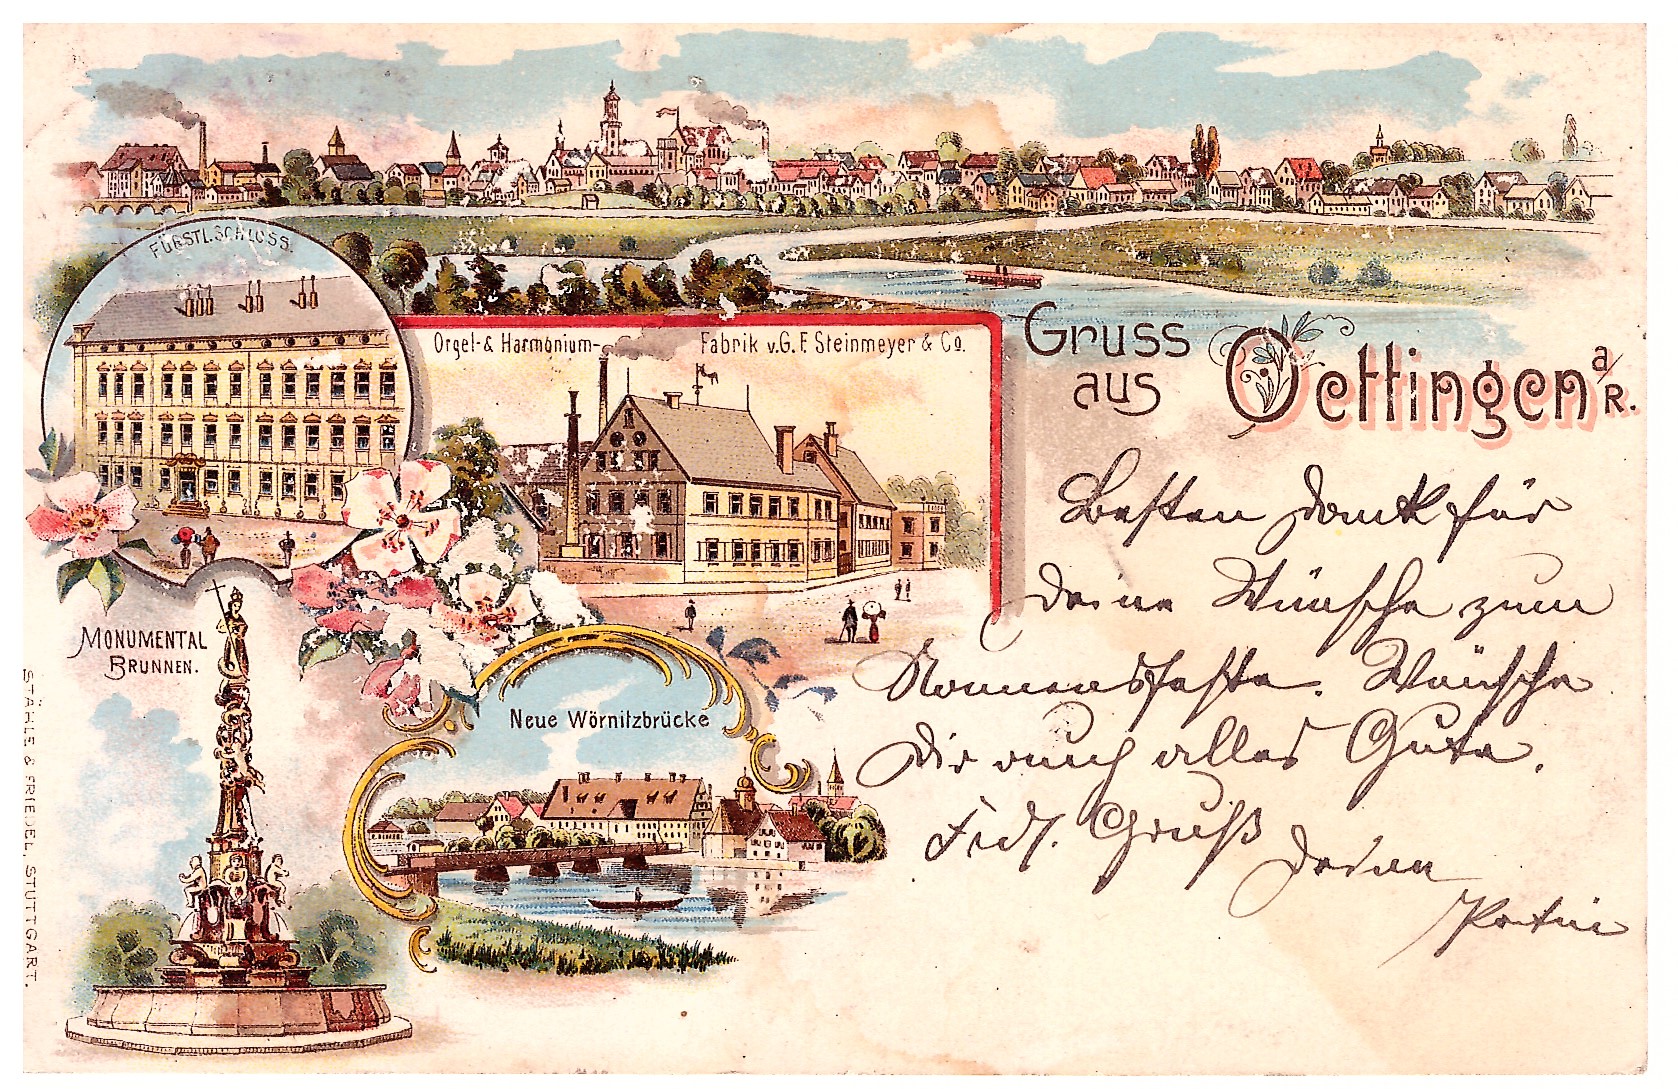 FÜRSTL. SCHLOSS.
Orgel- & Harmonium-Fabrik v. G. F. Steinmeyer & Co.
Gruss
aus Oettingen a/R.
MONUMENTAL
BRUNNEN.
Neue Wörnitzbrücke
STÄHLE & FRIEDEL, STUTTGART.
Besten Dank für
Deine Wünsche zum
Namensfeste. Wünsche
Dir auch alles Gute.
Gruß
Deine